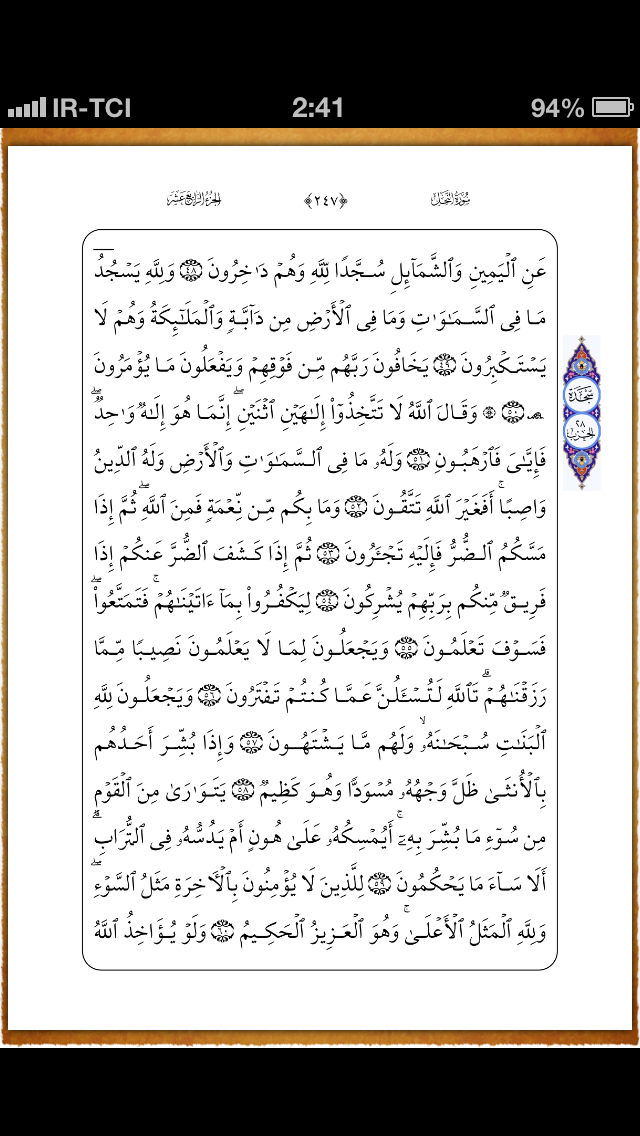 IR-TCI 2:41 94%
سورة النحل ﴿٢٤٧﴾ الجزء الرابع عشر
عَنِ ٱلْيَمِينِ وَٱلشَّمَآئِلِ سُجَّدًا لِّلَّهِ وَهُمْ دَٰخِرُونَ ﴿٤٨﴾ وَلِلَّهِ يَسْجُدُ
مَا فِى ٱلسَّمَٰوَٰتِ وَمَا فِى ٱلْأَرْضِ مِن دَآبَّةٍ وَٱلْمَلَٰٓئِكَةُ وَهُمْ لَا
يَسْتَكْبِرُونَ ﴿٤٩﴾ يَخَافُونَ رَبَّهُم مِّن فَوْقِهِمْ وَيَفْعَلُونَ مَا يُؤْمَرُونَ
﴿٥٠﴾ ۞ وَقَالَ ٱللَّهُ لَا تَتَّخِذُوٓا۟ إِلَٰهَيْنِ ٱثْنَيْنِ ۖ إِنَّمَا هُوَ إِلَٰهٌ وَٰحِدٌ ۖ
فَإِيَّٰىَ فَٱرْهَبُونِ ﴿٥١﴾ وَلَهُۥ مَا فِى ٱلسَّمَٰوَٰتِ وَٱلْأَرْضِ وَلَهُ ٱلدِّينُ
وَاصِبًا ۚ أَفَغَيْرَ ٱللَّهِ تَتَّقُونَ ﴿٥٢﴾ وَمَا بِكُم مِّن نِّعْمَةٍ فَمِنَ ٱللَّهِ ۖ ثُمَّ إِذَا
مَسَّكُمُ ٱلضُّرُّ فَإِلَيْهِ تَجْـَٔرُونَ ﴿٥٣﴾ ثُمَّ إِذَا كَشَفَ ٱلضُّرَّ عَنكُمْ إِذَا
فَرِيقٌ مِّنكُم بِرَبِّهِمْ يُشْرِكُونَ ﴿٥٤﴾ لِيَكْفُرُوا۟ بِمَآ ءَاتَيْنَٰهُمْ ۚ فَتَمَتَّعُوا۟ ۖ
فَسَوْفَ تَعْلَمُونَ ﴿٥٥﴾ وَيَجْعَلُونَ لِمَا لَا يَعْلَمُونَ نَصِيبًا مِّمَّا
رَزَقْنَٰهُمْ ۗ تَٱللَّهِ لَتُسْـَٔلُنَّ عَمَّا كُنتُمْ تَفْتَرُونَ ﴿٥٦﴾ وَيَجْعَلُونَ لِلَّهِ
ٱلْبَنَٰتِ سُبْحَٰنَهُۥ ۙ وَلَهُم مَّا يَشْتَهُونَ ﴿٥٧﴾ وَإِذَا بُشِّرَ أَحَدُهُم
بِٱلْأُنثَىٰ ظَلَّ وَجْهُهُۥ مُسْوَدًّا وَهُوَ كَظِيمٌ ﴿٥٨﴾ يَتَوَٰرَىٰ مِنَ ٱلْقَوْمِ
مِن سُوٓءِ مَا بُشِّرَ بِهِۦٓ ۚ أَيُمْسِكُهُۥ عَلَىٰ هُونٍ أَمْ يَدُسُّهُۥ فِى ٱلتُّرَابِ ۗ
أَلَا سَآءَ مَا يَحْكُمُونَ ﴿٥٩﴾ لِلَّذِينَ لَا يُؤْمِنُونَ بِٱلْءَاخِرَةِ مَثَلُ ٱلسَّوْءِ ۖ
وَلِلَّهِ ٱلْمَثَلُ ٱلْأَعْلَىٰ ۚ وَهُوَ ٱلْعَزِيزُ ٱلْحَكِيمُ ﴿٦٠﴾ وَلَوْ يُؤَاخِذُ ٱللَّهُ
سجدة
٢٨
الحزب